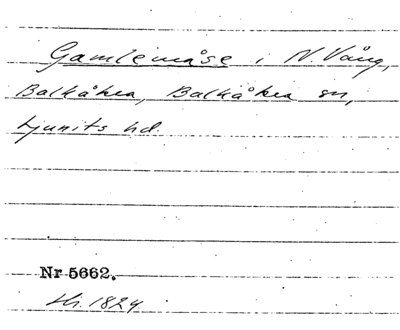 Gamlemåse i N. Vång,
Balkåkra, Balkåkra sn,
Ljunits hd.
Nr 5662.
1824